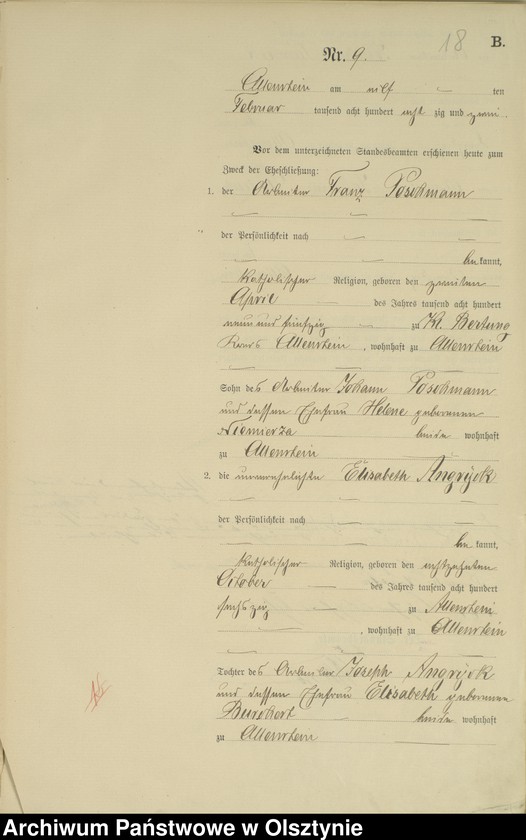 18 B.
Nr. 9.
Allenstein am elf ten
Februar tausend acht hundert acht zig und zwei.
Vor dem unterzeichneten Standesbeamten erschienen heute zum
Zweck der Eheschließung:
1. der Arbeiter Franz Poschmann
der Persönlichkeit nach
be kannt,
katholischer Religion, geboren den zweiten
April des Jahres tausend acht hundert
neun und fünfzig zu Kl. Bertung
Kreis Allenstein, wohnhaft zu Allenstein
Sohn des Arbeiter Johann Poschmann
und dessen Ehefrau Helene geborenen
Niemierza beide wohnhaft
zu Allenstein
2. die unverehelichte Elisabeth Angrijek
der Persönlichkeit nach
be kannt,
katholischer Religion, geboren den achtzehnten
October des Jahres tausend acht hundert
sechszig zu Allenstein
, wohnhaft zu Allenstein
Tochter des Arbeiter Joseph Angrijek
und dessen Ehefrau Elisabeth geborenen
Burchert beide wohnhaft
zu Allenstein
Archiwum Państwowe w Olsztynie